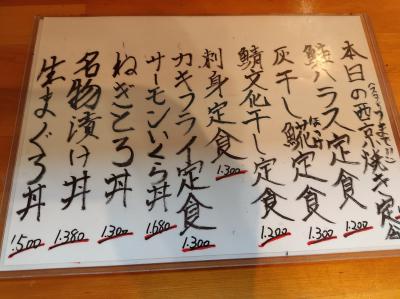 本日の西京焼き定食
1.200
鮭ハラス定食
1.300
灰干し鯱定食
1.200
鯖文化干し定食
刺身定食
1.300
カキフライ定食
1.300
サーモンいくら丼
1.680
ねぎとろ丼
1.300
名物漬け丼
1.380
生まぐろ丼
1.500